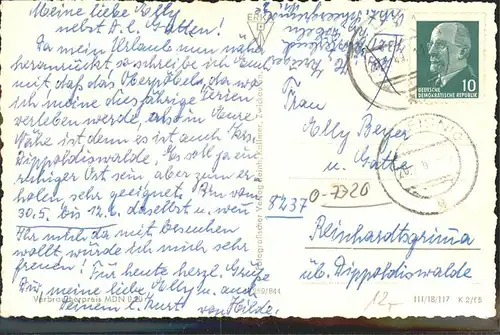 Meine liebe Elly
nebst H. l. Gatten!
Da mein Urlaub nun näher
heranrückt so schreibe ich Euch
mit, daß das Oberpöbel, da wo
ich meine diesjährige Ferien
verleben werde, also in Eure
Nähe ist, denn es ist auch Krs.
Dippoldiswalde. Es soll ja ein
ruhiger Ort sein aber zum er-
holen sehr geeignet. Bin vom
30.5. bis 12.6. daselbst u. wenn
Ihr mich da mit besuchen
wollt würde ich mich sehr
freuen! Für heute herzl. Grüße
Dir, meine liebe Elly u. auch
Deinem l. Kurt von Hilde.
Verbraucherpreis MDN 0,20
DEUTSCHE
DEMOKRATISCHE REPUBLIK
10
Frau
Elly Beyer
u. Gatte
8237
0-7320
Reinhardtsgrima
üb. Dippoldiswalde
III/18/117 K 2/65
12,-